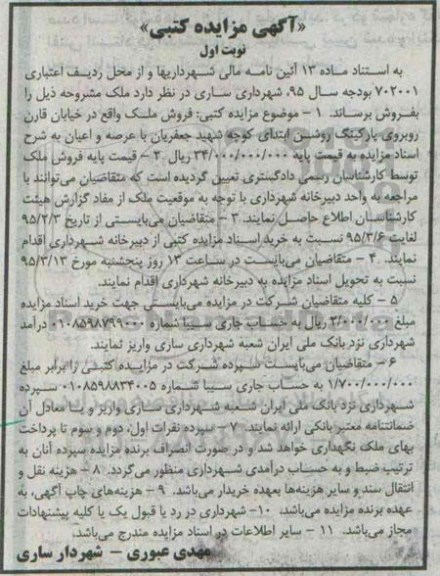 «آگهی مزایده کتبی»
نوبت اول
به استناد ماده ۱۳ آئین نامه مالی شهرداریها و از محل ردیف اعتباری
۷۰۲۰۰۱ بودجه سال ۹۵، شهرداری ساری در نظر دارد ملک مشروحه ذیل را
بفروش برساند. ۱ - موضوع مزایده کتبی: فروش ملک واقع در خیابان قارن
روبروی پارکینگ روشن ابتدای کوچه شهید جعفریان با عرصه و اعیان به شرح
اسناد مزایده به قیمت پایه ۳۴/۰۰۰/۰۰۰/۰۰۰ ریال ۲ - قیمت پایه فروش ملک
توسط کارشناسان رسمی دادگستری تعیین گردیده است که متقاضیان می‌توانند با
مراجعه به واحد دبیرخانه شهرداری با توجه به موقعیت ملک از مفاد گزارش هیئت
کارشناسان اطلاع حاصل نمایند. ۳ - متقاضیان می‌بایستی از تاریخ ۹۵/۳/۳
لغایت ۹۵/۳/۶ نسبت به خرید اسناد مزایده کتبی از دبیرخانه شهرداری اقدام
نمایند. ۴ - متقاضیان می‌بایست در ساعت ۱۳ روز پنجشنبه مورخ ۹۵/۳/۱۳
نسبت به تحویل اسناد مزایده به دبیرخانه شهرداری اقدام نمایند.
۵ - کلیه متقاضیان شرکت در مزایده می‌بایستی جهت خرید اسناد مزایده
مبلغ ۳/۰۰۰/۰۰۰ ریال به حساب جاری سیبا شماره ۰۱۰۸۵۹۸۷۹۹۰۰۰ درآمد
شهرداری نزد بانک ملی ایران شعبه شهرداری ساری واریز نمایند.
۶ - متقاضیان می‌بایست سپرده شرکت در مزایده کتبی را برابر مبلغ
۱/۷۰۰/۰۰۰/۰۰۰ به حساب جاری سیبا شماره ۰۱۰۸۵۹۸۸۳۴۰۰۵ سپرده
شهرداری نزد بانک ملی ایران شعبه شهرداری ساری واریز و یا معادل آن
ضمانتنامه معتبر بانکی ارائه نمایند. ۷ - سپرده نفرات اول، دوم و سوم تا پرداخت
بهای ملک نگهداری خواهد شد و در صورت انصراف برنده مزایده سپرده آنان به
ترتیب ضبط و به حساب درآمدی شهرداری منظور می‌گردد. ۸ - هزینه نقل و
انتقال سند و سایر هزینه‌ها بعهده خریدار می‌باشد. ۹ - هزینه‌های چاپ آگهی، به
عهده برنده مزایده می‌باشد. ۱۰- شهرداری در رد یا قبول یک یا کلیه پیشنهادات
مجاز می‌باشد. ۱۱ - سایر اطلاعات در اسناد مزایده مندرج می‌باشد.
مهدی عبوری - شهردار ساری